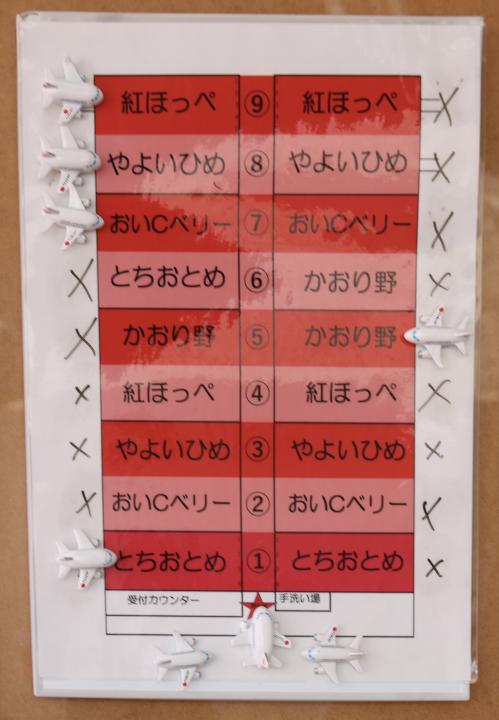 紅ほっぺ ⑨ 紅ほっぺ
やよいひめ ⑧ やよいひめ
おいCベリー ⑦ おいCベリー
とちおとめ ⑥ かおり野
かおり野 ⑤ かおり野
紅ほっぺ ④ 紅ほっぺ
やよいひめ ③ やよいひめ
おいCベリー ② おいCベリー
とちおとめ ① とちおとめ
受付カウンター 手洗い場